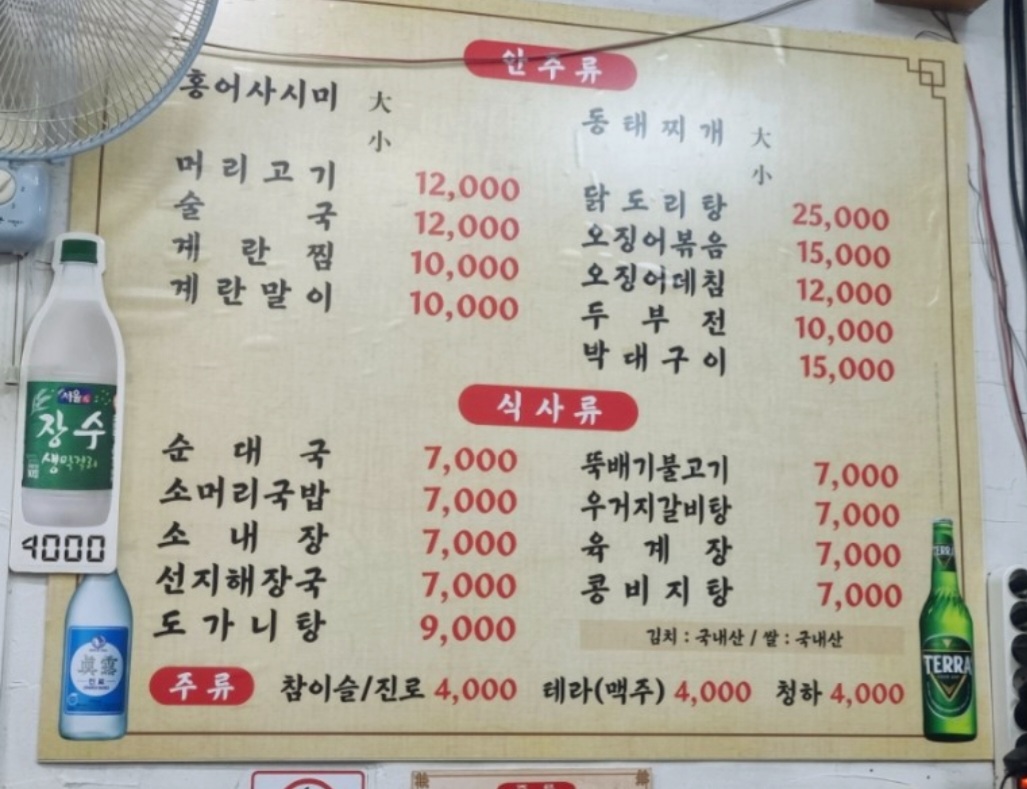 안주류
홍어사시미 大
小
머리고기 12,000
술국 12,000
계란찜 10,000
계란말이 10,000
동태찌개 大
小
닭도리탕 25,000
오징어볶음 15,000
오징어데침 12,000
두부전 10,000
박대구이 15,000
식사류
순대국 7,000
소머리국밥 7,000
소내장 7,000
선지해장국 7,000
도가니탕 9,000
뚝배기불고기 7,000
우거지갈비탕 7,000
육계장 7,000
콩비지탕 7,000
김치 : 국내산 / 쌀 : 국내산
주류 참이슬/진로 4,000 테라(맥주) 4,000 청하 4,000
서울
장수
생막걸리
4000
眞露
진로
TERRA
TERRA